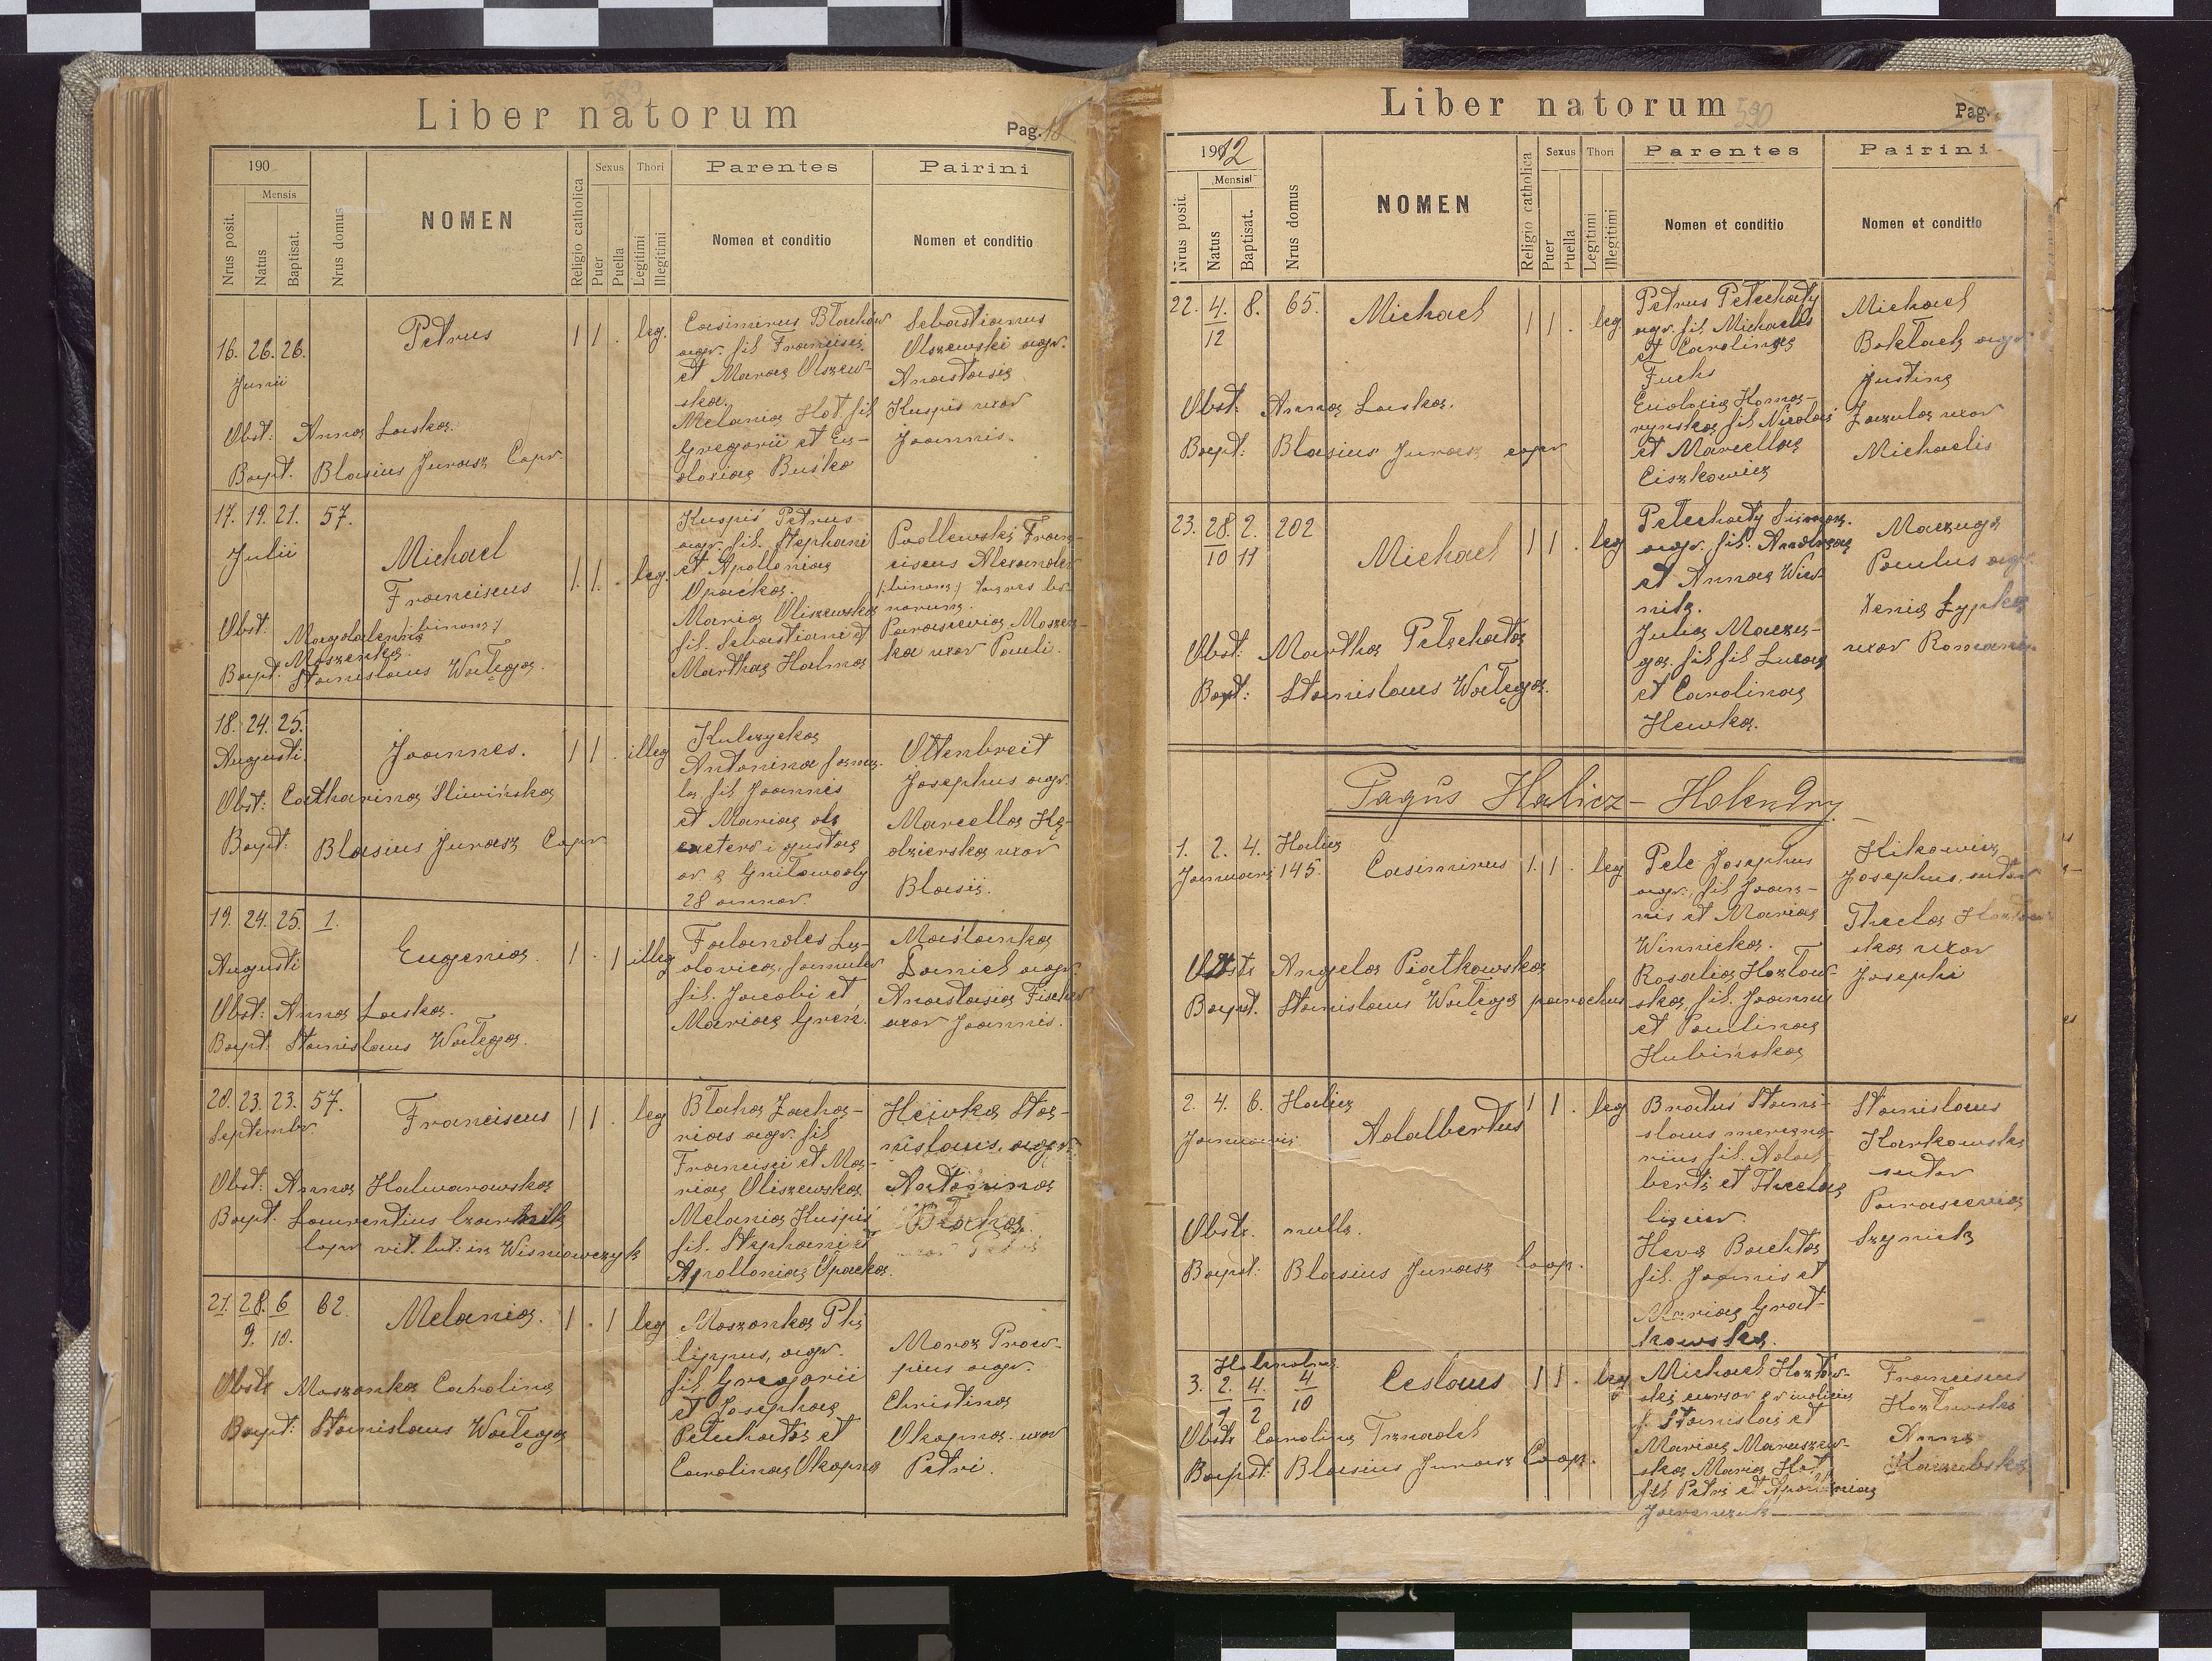 Liber natorum
Pag. 18
190
Mensis
Nrus posit.
Natus
Baptisat.
Nrus domus
NOMEN
Religio catholica
Sexus
Puer
Puella
Thori
Legitimi
Illegitimi
Parentes
Nomen et conditio
Pairini
Nomen et conditio
16. 26. 26.
Junii
Petrus
1 1 . leg.
Casimirus Blachów
agr. fil. Francisci
et Maria Olszew-
ska.
Melania Hot. fil
Gregorii et Eu-
doxia Buśko
Sebastianus
Olszewski agr.
Anastasia
Kuspis uxor
Joannis.
Obst: Anna Laska.
Bapt. Blasius Jurasz Copr.
17. 19. 21. 57.
Julii
Michael
Franciscus
/:binom:/
1. 1. . leg.
Kuspiś Petrus
agr. fil. Stephani
et Apollonia
Opaćka.
Maria Oliszewska
fil. Sebastiani et
Martha Halma
Podlewski Fran-
ciscus Alexander
/:binom:/
Parascevia Moszon-
ka uxor Pauli.
Obst: Magdalenna
Moszonka.
Bapt. Stanislaus Watęga.
18. 24. 25.
Augusti
Joannes.
1 1 . illeg
Kulczycka
Antonina famu-
la, fil Joannis
et Maria de
28 annor.
Ottenbreit
Josephus agr.
Marcella Kę-
dzierska uxor
Blasii.
Obst: Catharina Sliwińska
Bapt: Blasius Jurasz Copr
19. 24. 25. 1.
Augusti
Eugenia
1 . 1 illeg
Falandes Lu-
dovica, famula
fil. Jacobi et
Maria Gren.
Maślanka
Daniel agr.
Anastasia Fischer
uxor Joannis.
Obst: Anna Laska.
Bapt: Stanislaus Watęga.
20. 23. 23. 57.
Septembr.
Franciscus
1 1 . leg
Blaha Zacha-
rias agr. fil
Francisci et Ma-
ria Oliszewska
Melania Kuspiś
fil. Stephani et
Apollonia Opacka.
Hewka Sta-
nislaus. agr.
Antonina
Blaha
Obst: Anna Halwarowska
Bapt: Laurentius
Copr rit. lat: in Wisniowczyk
21. 28. 6 62.
9. 10.
Melania.
1 . 1 leg
Moszonka Phi
lippus, agr.
fil Gregorii
et Josepha
Petechata et
Carolina Okopna
Maroz Proco-
pius agr.
Christina
Okopna uxor
Petri.
Obste Moszonka Carolina
Bapt: Stanislaus Watęga
Liber natorum
590
Pag.
1912
Mensis
Nrus posit.
Natus
Baptisat.
Nrus domus
NOMEN
Religio catholica
Sexus
Puer
Puella
Thori
Legitimi
Illegitimi
Parentes
Nomen et conditio
Pairini
Nomen et conditio
22. 4. 8. 65.
12
Michael
1 1 . leg
Petrus Petechaty
agr. fil. Michaelis
et Carolina
Fuchs
Eudocia Koma-
rynska, fil Nicolai
et Marcella
Ciszkowicz
Michael
Boklach agr
Justina
Zazula uxor
Michaelis
Obst: Anna Laska.
Bapt: Blasius Jurasz copr
23. 28. 2. 202
10 11
Michael
1 1 . leg
Petechaty Simon.
agr. fil. Andreae
et Anna Wiw-
nik.
Julia Maczu-
ga. fil fil Luca
et Carolina
Hewka.
Maczuga
Paulus agr.
Xenia Łypka
uxor Romani
Obst: Martha Petechata
Bapt: Stanislaus Watęga.
Pagus Halicz - Holendry
1. 2. 4. Halicz
Januarii 145.
Casimirus
1. 1 . leg
Pele Josephus
agr. fil Joan-
nis et Maria
Winnicka.
Rosalia Kozłow-
ska, fil. Joannis
et Paulina
Kubińska
Hikowicz
Josephus, sutor
Thecla
ska uxor
Josephi
Obste Angela Piątkowska
Bapt. Stanislaus Watęga parochus
2. 4. 6. Halicz
Januarii
Adalbertus
1 1 . leg
Bratuś Stani-
slaus mercena-
rius fil. Adal-
berti et Thecla
Heva Bachta
fil. Joannis et
Maria Grat-
kowska.
Stanislaus
Karkowski
sutor
Parascevia
Szynick
Obste. nulla.
Bapt: Blasius Jurasz Coop.
3. 2. 4. 4
1 2 10
Ceslaus
1 1 . leg
Michael Kozłow-
ski
f. Stanislai et
Maria Maruszew-
ska, Maria Hot
fil Petri et Apollonia
Franciscus
Kozłowski
Anna
Obste Carolina
Bapt: Blasius Jurasz Coop.